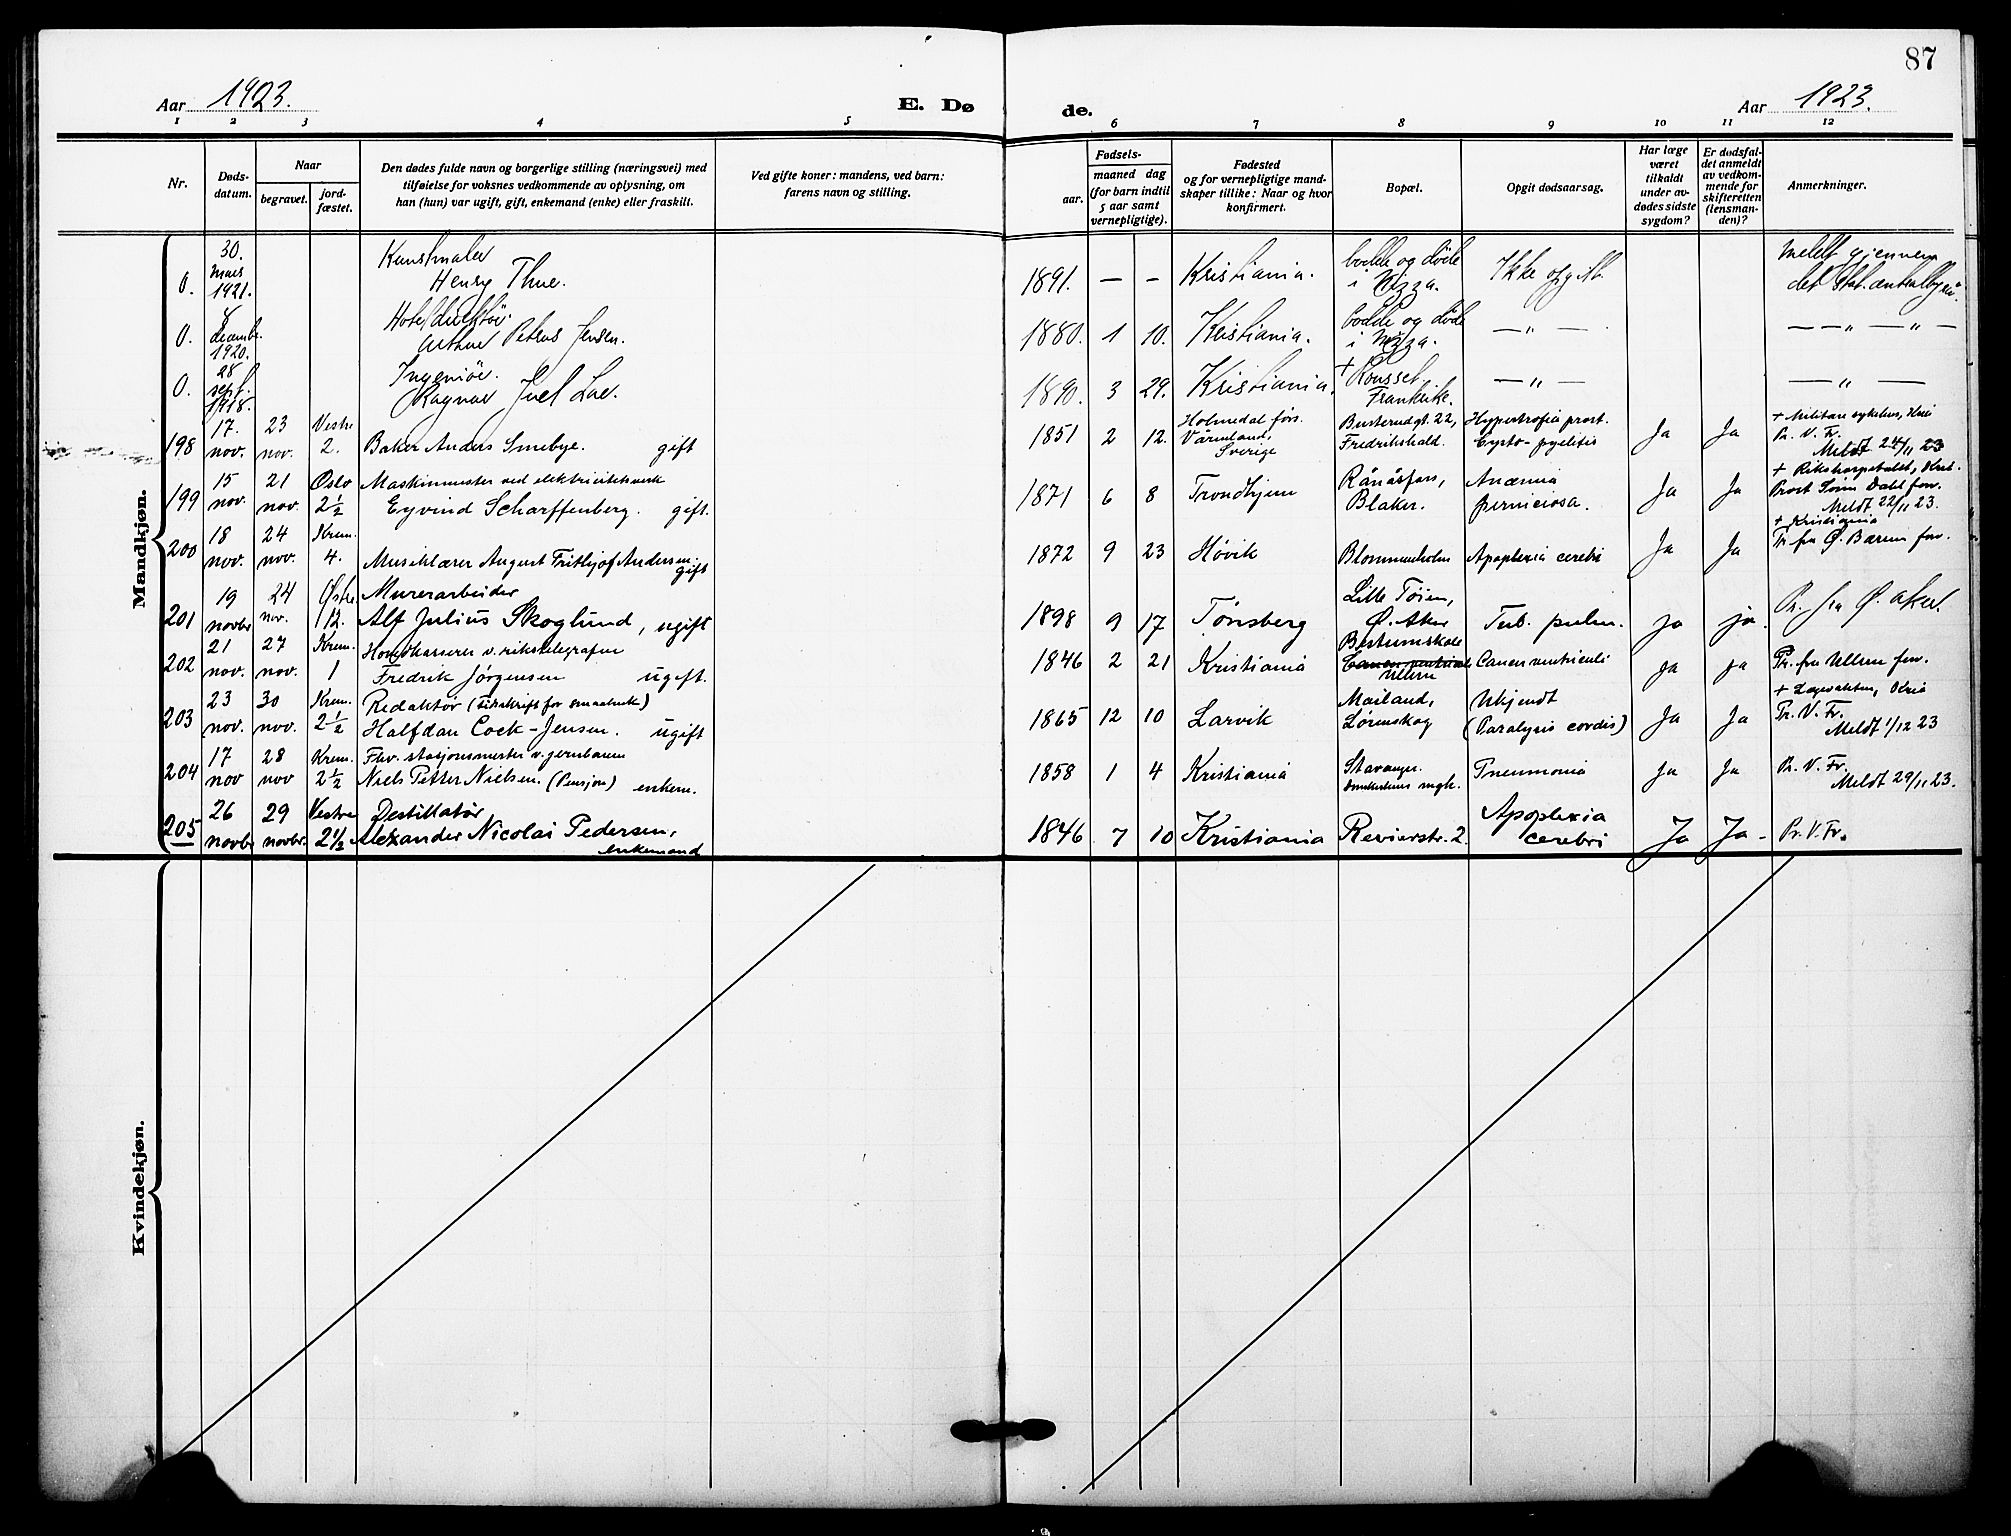 87
Aar 1923.
E. Døde.
Aar 1923.
1 2 3 4 5 6 7 8 9 10 11 12
Nr.
Døds-
datum.
Naar
begravet.
jord-
fæstet.
Den dødes fulde navn og borgerlige stilling (næringsvei) med
tilføielse for voksnes vedkommende av oplysning, om
han (hun) var ugift, gift, enkemand (enke) eller fraskilt.
Ved gifte koner: mandens, ved barn:
farens navn og stilling.
Fødsels-
aar.
maaned dag
(for barn indtil
5 aar samt
vernepligtige).
Fødested
og for vernepligtige mand-
skaper tillike: Naar og hvor
konfirmert.
Bopæl.
Opgit dødsaarsag.
Har læge
været
tilkaldt
under av-
dødes sidste
sygdom?
Er dødsfal-
det anmeldt
av vedkom-
mende for
skifteretten
(lensman-
den)?
Anmerkninger.
Mandkjøn.
0. 30. mars 1921. Kunstmaler
Henry Thue. 1891. — — Kristiania. bodde og døde i Nizza. Ikke opgitt. Meldt gjennem
0. december 1920. Hoteldirektör.
Arthur Petrus Jensen. 1880. 1 10. Kristiania. bodde og døde i Nizza. — „ — — „ — „ —
0. 28 sept. 1918. Ingeniör.
Ragnar Juel Lae. 1890. 3 29. Kristiania. + Rousset, Frankrike. — „ — — „ —
198 17. nov. 23 nov. Vestre 2. Baker Anders Smebye. gift 1851 2 12. Holmedal förs. Värmland, Sverige Fredrikshald. Hypertrofia prost. Cysto-pyelitis Ja Ja + Militære sykehus, Kria
Pr. V. Fr.
Meldt 24/11 23
199 15 nov. 21 nov. Oslo 2½ Maskinmester ved elektricitetsverk
Eyvind Scharffenberg. gift. 1871 6 8 Trondhjem Rånåsfoss, Blaker. Anæmia perniciosa. Ja Ja + Rikshospitalet, Kria.
Meldt 22/11 23.
200 18 nov. 24 nov. Krem. 4. Musiklærer August Fritjof Andersen, gift 1872 9 23 Høvik Blommenholm Apoplexia cerebri Ja Ja + Kristiania
Tr. fra Ø. Bærum fov.
201 19 novbr 24 nov. Østre 12. Murerarbeider
Alf Julius Skoglund, ugift 1898 9 17 Tønsberg Lille Tøien, Ø. Aker Tub. pulm. ja ja. Pr. fra Ø. Aker.
202 21 nov. 27 nov. Krem. 1 Hovedkasserer v. rikstelegrafen
Fredrik Jörgensen ugift. 1846 2 21 Kristiania Bestumskole Ullern Cancer ventriculi ja ja Pr. fra Ullern fov.
203 23 nov. 30 nov. Krem. 2½ Redaktör (Tidsskrift for smaabruk)
Halfdan Cock-Jensen. ugift 1865 12 10 Larvik Mailand, Lörenskog Ukjendt
(Paralysis cordis) Ja Ja + Lægevakten, Kria
Pr. V. Fr.
Meldt 1/12 23
204 17 nov 28 nov Krem. 2½ Fhv. stasjonsmester v. jernbanen
Niels Petter Nielsen. (Pensjon) enkem. 1858 1 4 Kristiania Stavanger. Pneumonia Ja Ja Pr. V. Fr.
Meldt 29/11 23.
205 26 novbr 29 novbr. Vestre 2½ Destillatör
Alexander Nicolai Pedersen,
enkemand 1846 7 10 Kristiania Revierstr. 2. Apoplexia cerebri Ja Ja - Pr. V. Fr.
Kvindekjøn.